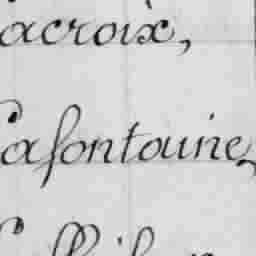 acroix,
Lafontaine,